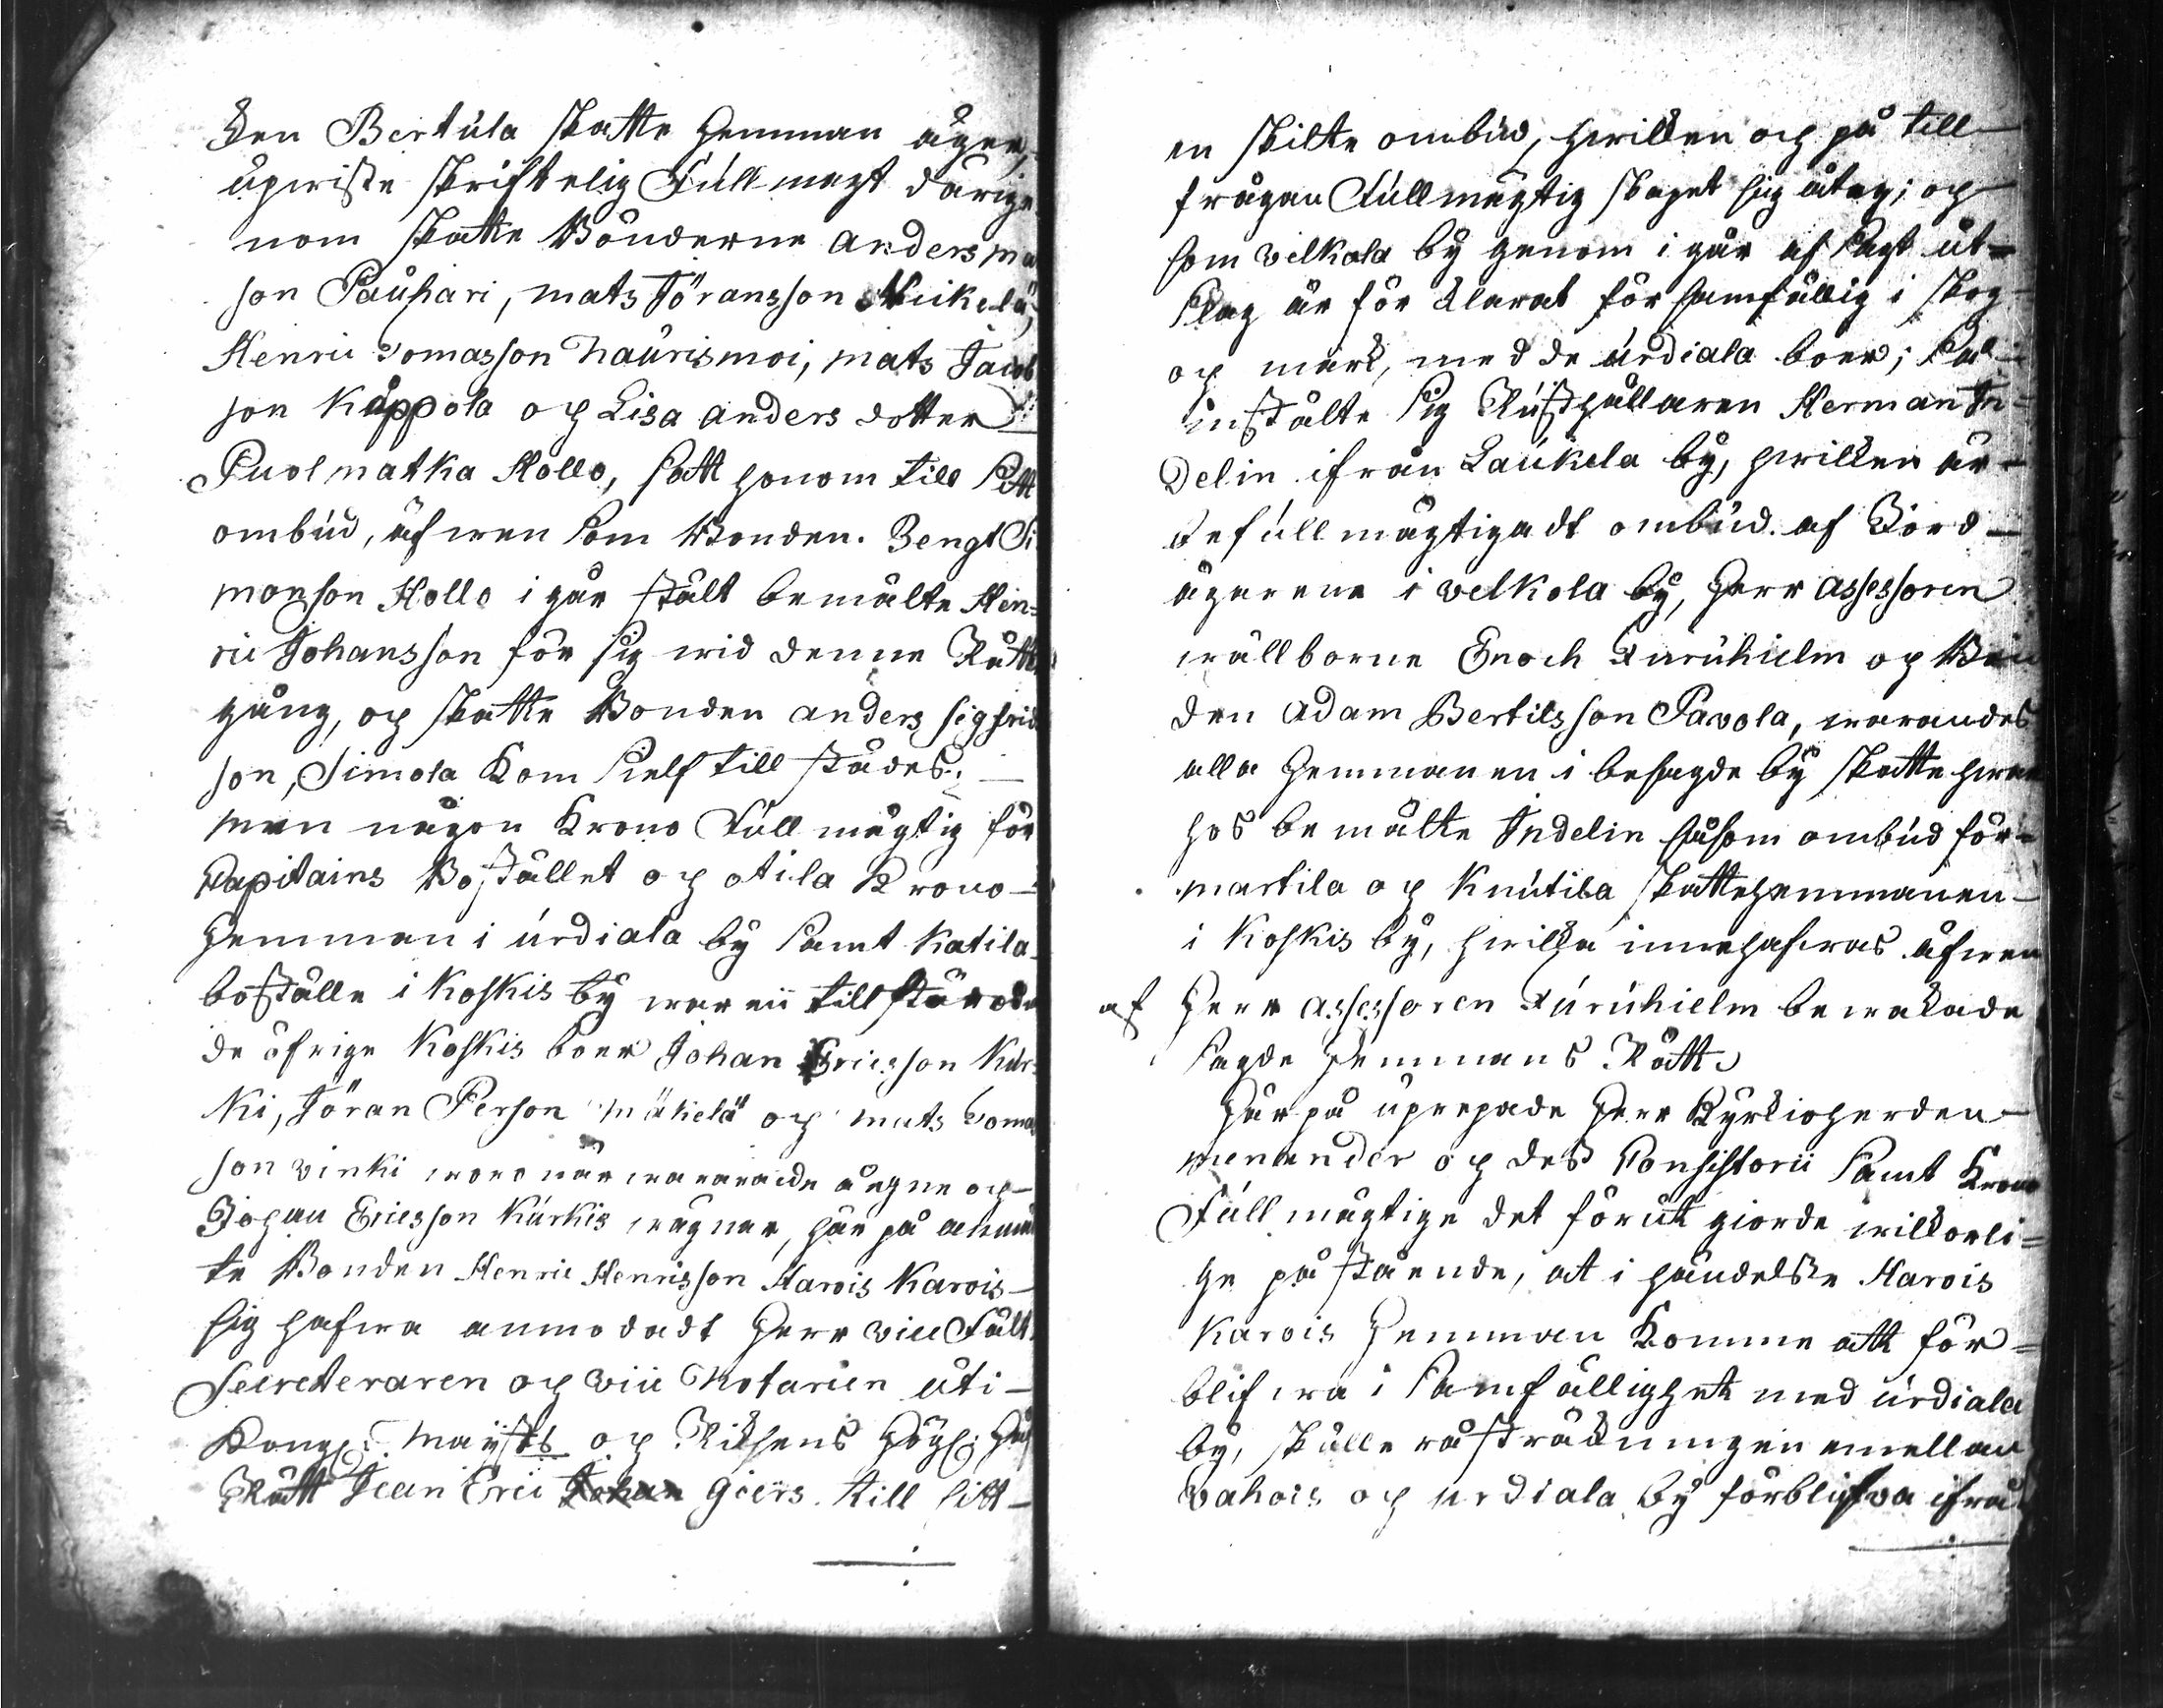 den Bertula skatte hemman äger,
upviste skriftelig Fullmagt därige
nom skatte Bönderne anders ma
son Pauhari, mats Jöransson Mickelä,
Henric Tomasson Naurismoi, mats Jacob
son Käppola och Lisa anders dotter
Puolmatka Hollo, satt honom till sitt
ombud, äfwen som Bonden. Bengt Si
monson Hollo i går stält bemälte Hen=
ric Johansson för sig wid denne Rätte
gång, och skatte Bonden anders sigfrids
son, Simola kom sielf tillstädes. —
men någon Krono Fullmägtig för
Capitains Bostället och otila Krono-
hemman i urdiala by samt Katila
boställe i Koskis by war ei tillstädes
de öfrige Koskis boer Johan Ericsson Kur=
ki, Jöran Person mäkelä och mats Tomas
son vinki woro närwarande ägne och-
Johan Ericsson Kurkis wägnar, här på anmäl
te Bonden Henric Henrisson Harvis Karvis-
sig hafwa anmodadt Herr vice Fält
Secreteraren och vice Notarien uti-
Kongl. maysts och Riksens Högl. Hof
Rätt Jean Eric Johan Geers till sitt-
en skilte ombud, hwilken och på till-
frågan Fullmägtig skapet sig åtog; och
som velkala by genom i går afsagt ut=
slag är för klarat för samfällig i skog
och mark, med de urdiala boer; så
instälte sig Rusthållaren Herman In=
delin ifrån Laukela by, hwilken är-
befullmägtigadt ombud af Jord-
ägarene i velkola by, Herr assessoren
wällborne Enoch Furuhielm och Bon
den Adam Bertilsson Pavola, warandes
alla Hemmanen i besagde by skatte hwar
hos bemälte Indelin såsom ombud för=
martila och Knutila skattehemmanen-
i Koskis by, hwilka innehafwas äfwen
af Herr assessoren Furuhielm bewakade
sagde Hemmans Rätt.
Här på uprepade Herr Kyrkioherden-
menander och des Consistorii samt Krono
Fullmägtige det förut giorde wilkorli=
ge påstående, at i händelse Harvis
Karvis Hemman komme att för=
blifwa i samfällighet med urdiala
by, skulle råsträckningen emellan
vahois och urdiala by förblifva ifrån